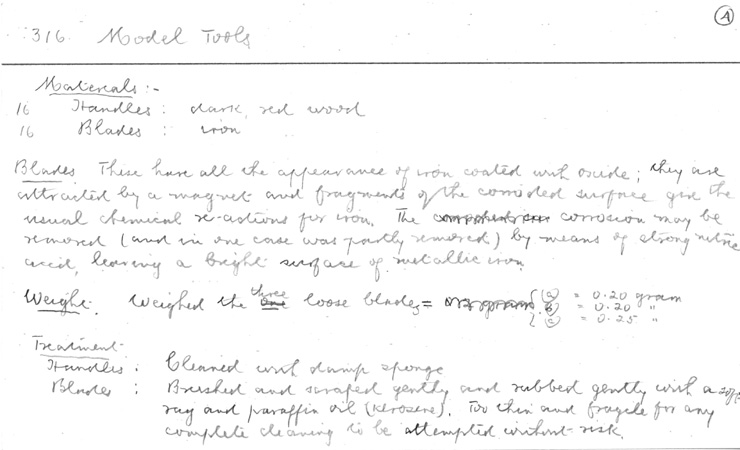 A
316 Model Tools
Materials:-
16 Handles: dark, red wood
16 Blades: iron
Blades These have all the appearance of iron coated with oxide; they are
attracted by a magnet and fragments of the corroded surface give the
usual chemical re-actions for iron. The corrosion may be
removed (and in one case was partly removed) by means of strong nitric
acid, leaving a bright surface of metallic iron.
Weight. Weighed the three loose blades = (a) = 0.20 gram
(b) = 0.20 "
(c) = 0.25 "
Treatment
Handles: Cleaned with damp sponge
Blades: Brushed and scraped gently and rubbed gently with a soft
rag and paraffin oil (kerosene). Too thin and fragile for any
complete cleaning to be attempted without risk.